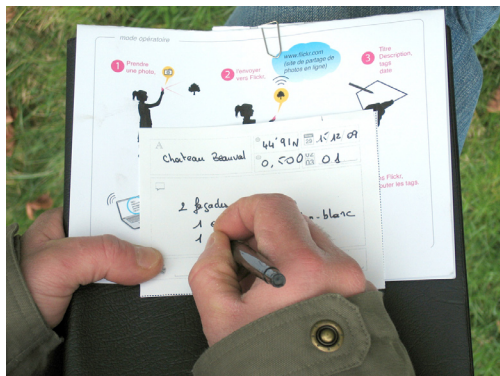 mode opératoire
1 Prendre
une photo,
2 l'envoyer
vers Flickr,
www.flickr.com
(site de partage de
photos en ligne)
3 Titre
Description,
tags
date
A
Chateau Beauval
44°91N 15 12 09
0,500 01
2 façades
1
1
blanc
Flickr,
outer les tags.